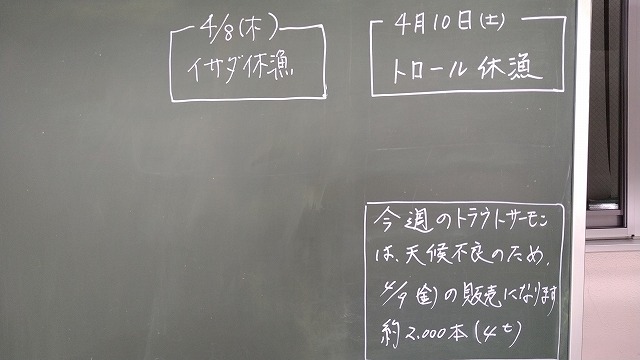 4/8(木)
イサダ休漁
4月10日(土)
トロール休漁
今週のトラウトサーモン
は、天候不良のため、
4/9(金)の販売になります
約2.000本(4t)